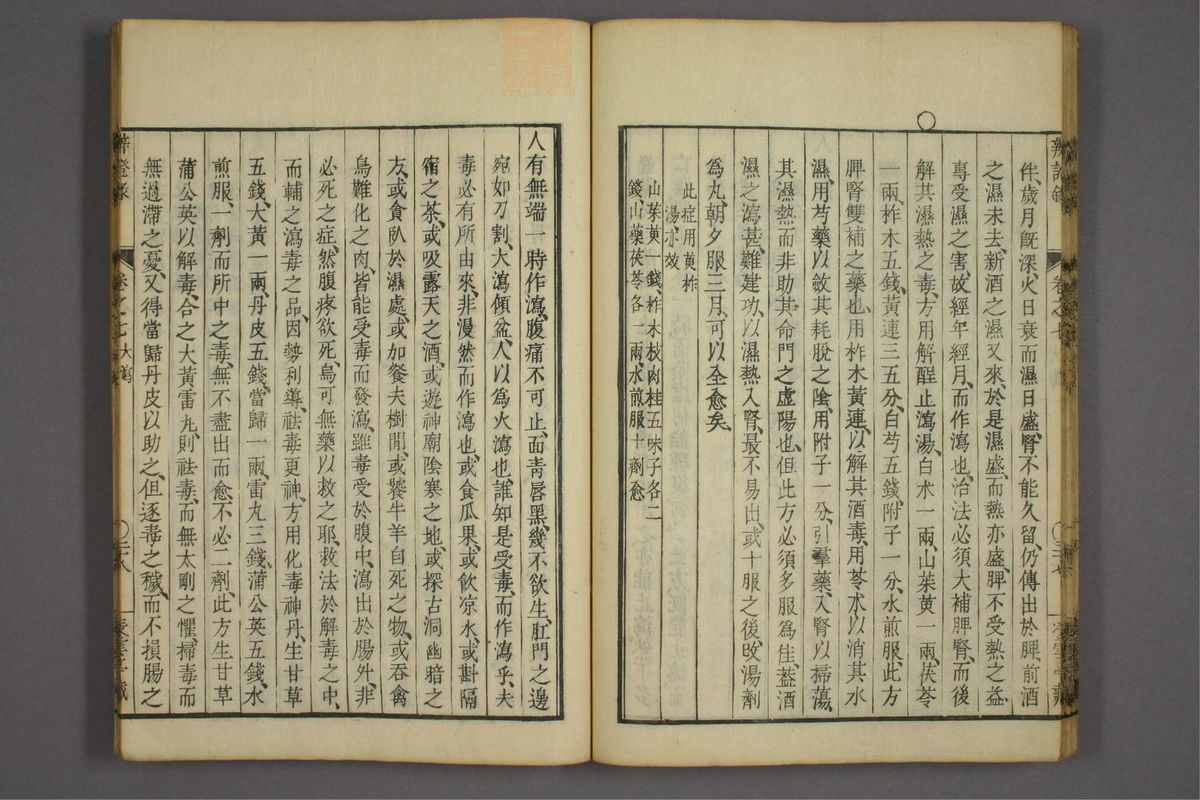 伴歲月旣深火日衰而濕日盛腎不能久留仍傳出於脾前酒
之濕未去、新酒之濕又來、於是濕盛、而熱亦盛、脾不受熱之益、
專受濕之害、故經年經月、而作瀉也、治法必須大補脾腎、而後
解其濕熱之毒、方用解酲止瀉湯、白术一兩、山茱萸一兩、茯苓
一兩、柞木五錢、黃連三五分、白芍五錢、附子一分、水煎服、此方
脾腎雙補之藥也、用柞木黃連、以解其酒毒、用苓术、以消其水
濕、用芍藥以斂其耗脫之陰、用附子一分、引羣藥入腎以掃蕩、
其濕熱、而非助其命門之虛陽也、但此方必須多服爲佳、葢酒
濕之瀉甚、難建功、以濕熱入腎、最不易出、或十服之後、改湯劑
爲丸、朝夕服三月、可以全愈矣、
此症用萸柞
湯、亦效
山茱萸一錢、柞木枝肉桂五味子各二
錢、山藥茯苓各一兩、水煎服十劑愈
辨證錄
卷之七
三十七
人有無端一時作瀉、腹痛不可止、面青唇黑、幾不欲生、肛門之邊
宛如刀割、大瀉傾盆、人以爲火瀉也、誰知是受毒、而作瀉乎、夫
毒必有所由來、非漫然而作瀉也、或食瓜果、或飮凉水、或斟隔
宿之茶、或吸露天之酒、或遊神廟陰寒之地、或探古洞幽暗之
方、或貪臥於濕處、或加餐夫樹間、或饕牛羊自死之物、或吞禽
鳥難化之肉、皆能受毒而發瀉、雖毒受於腹中、瀉出於腸外、非
必死之症、然腹疼欲死、烏可無藥以救之耶、救法於解毒之中、
而輔之瀉毒之品、因勢利導、祛毒更神、方用化毒神丹、生甘草
五錢、大黃一兩、丹皮五錢、當歸一兩、雷丸三錢、蒲公英五錢、水
煎服、一劑而所中之毒、無不盡出而愈、不必二劑、此方生甘草
蒲公英以解毒、合之大黃雷丸、則祛毒而無太剛之懼、掃毒而
無過滯之憂、又得當歸丹皮以助之、但逐毒之穢、而不損腸之
辨證錄
卷之七 大瀉
三十八